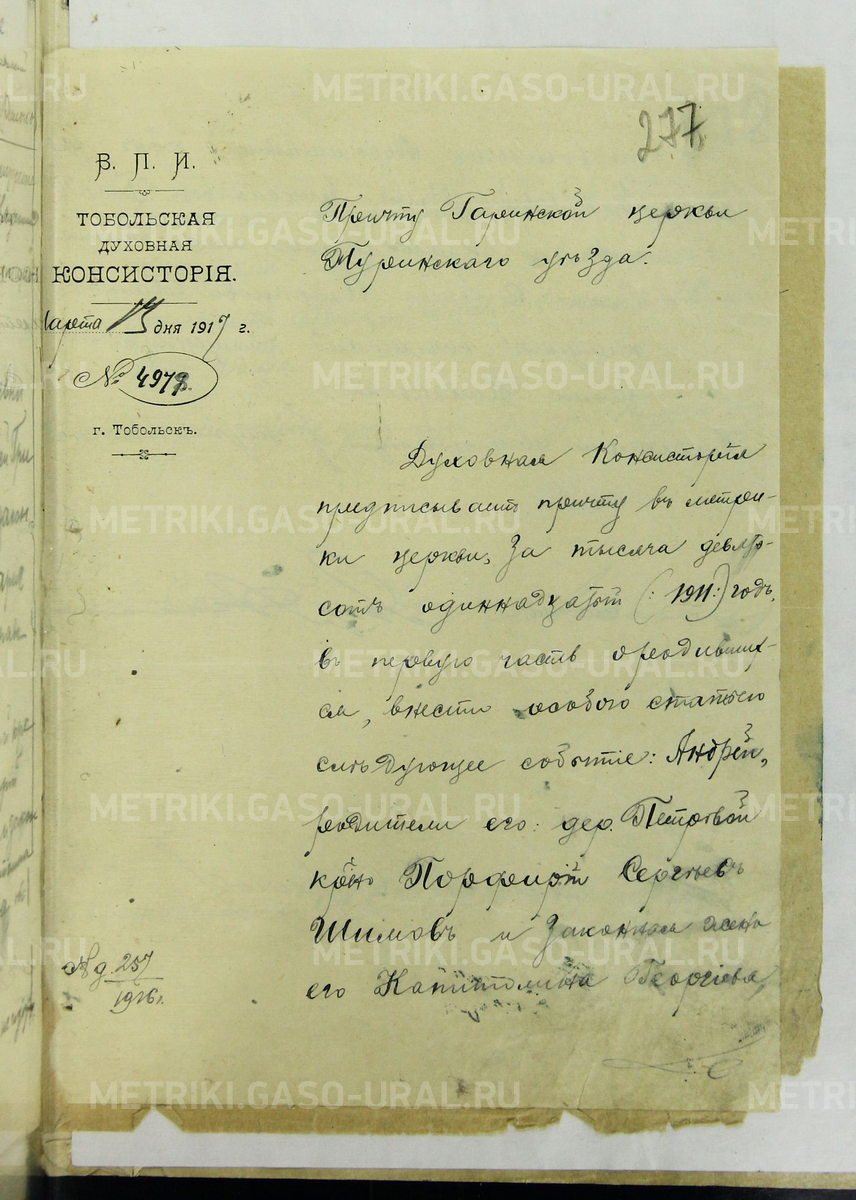 277
В. П. И.
ТОБОЛЬСКАЯ
ДУХОВНАЯ
КОНСИСТОРІЯ.
Марта 13 дня 1917 г.
№ 4978.
г. Тобольскъ.
Причту Гаринской церкви
Туринскаго уѣзда.
Духовная Консисторія
предписываетъ причту въ метри-
ки церкви, за тысяча девять-
сотъ одиннадцатый (: 1911 :) годъ,
въ первую часть о родивших-
ся, внести особою статьею
слѣдующее событіе: Андрей,
родители его: дер. Петровой
кр-нъ Порфирій Сергѣевъ
Шимовъ и законная жена
его Капитолина Георгіева,
257
1916 г.
METRIKI.GASO-URAL.RU